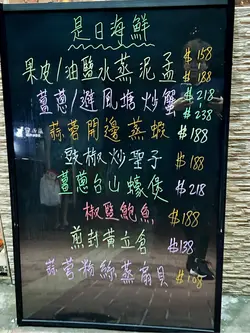 是日海鮮
果皮/油鹽水蒸泥孟 $158
$188
薑蔥/避風塘炒蟹 $218
$238
蒜蓉開邊蒸蝦 $188
豉椒炒聖子 $188
薑蔥台山蠔煲 $218
椒鹽鮑魚 $188
煎封黃立倉 $138
蒜蓉粉絲蒸扇貝 $108